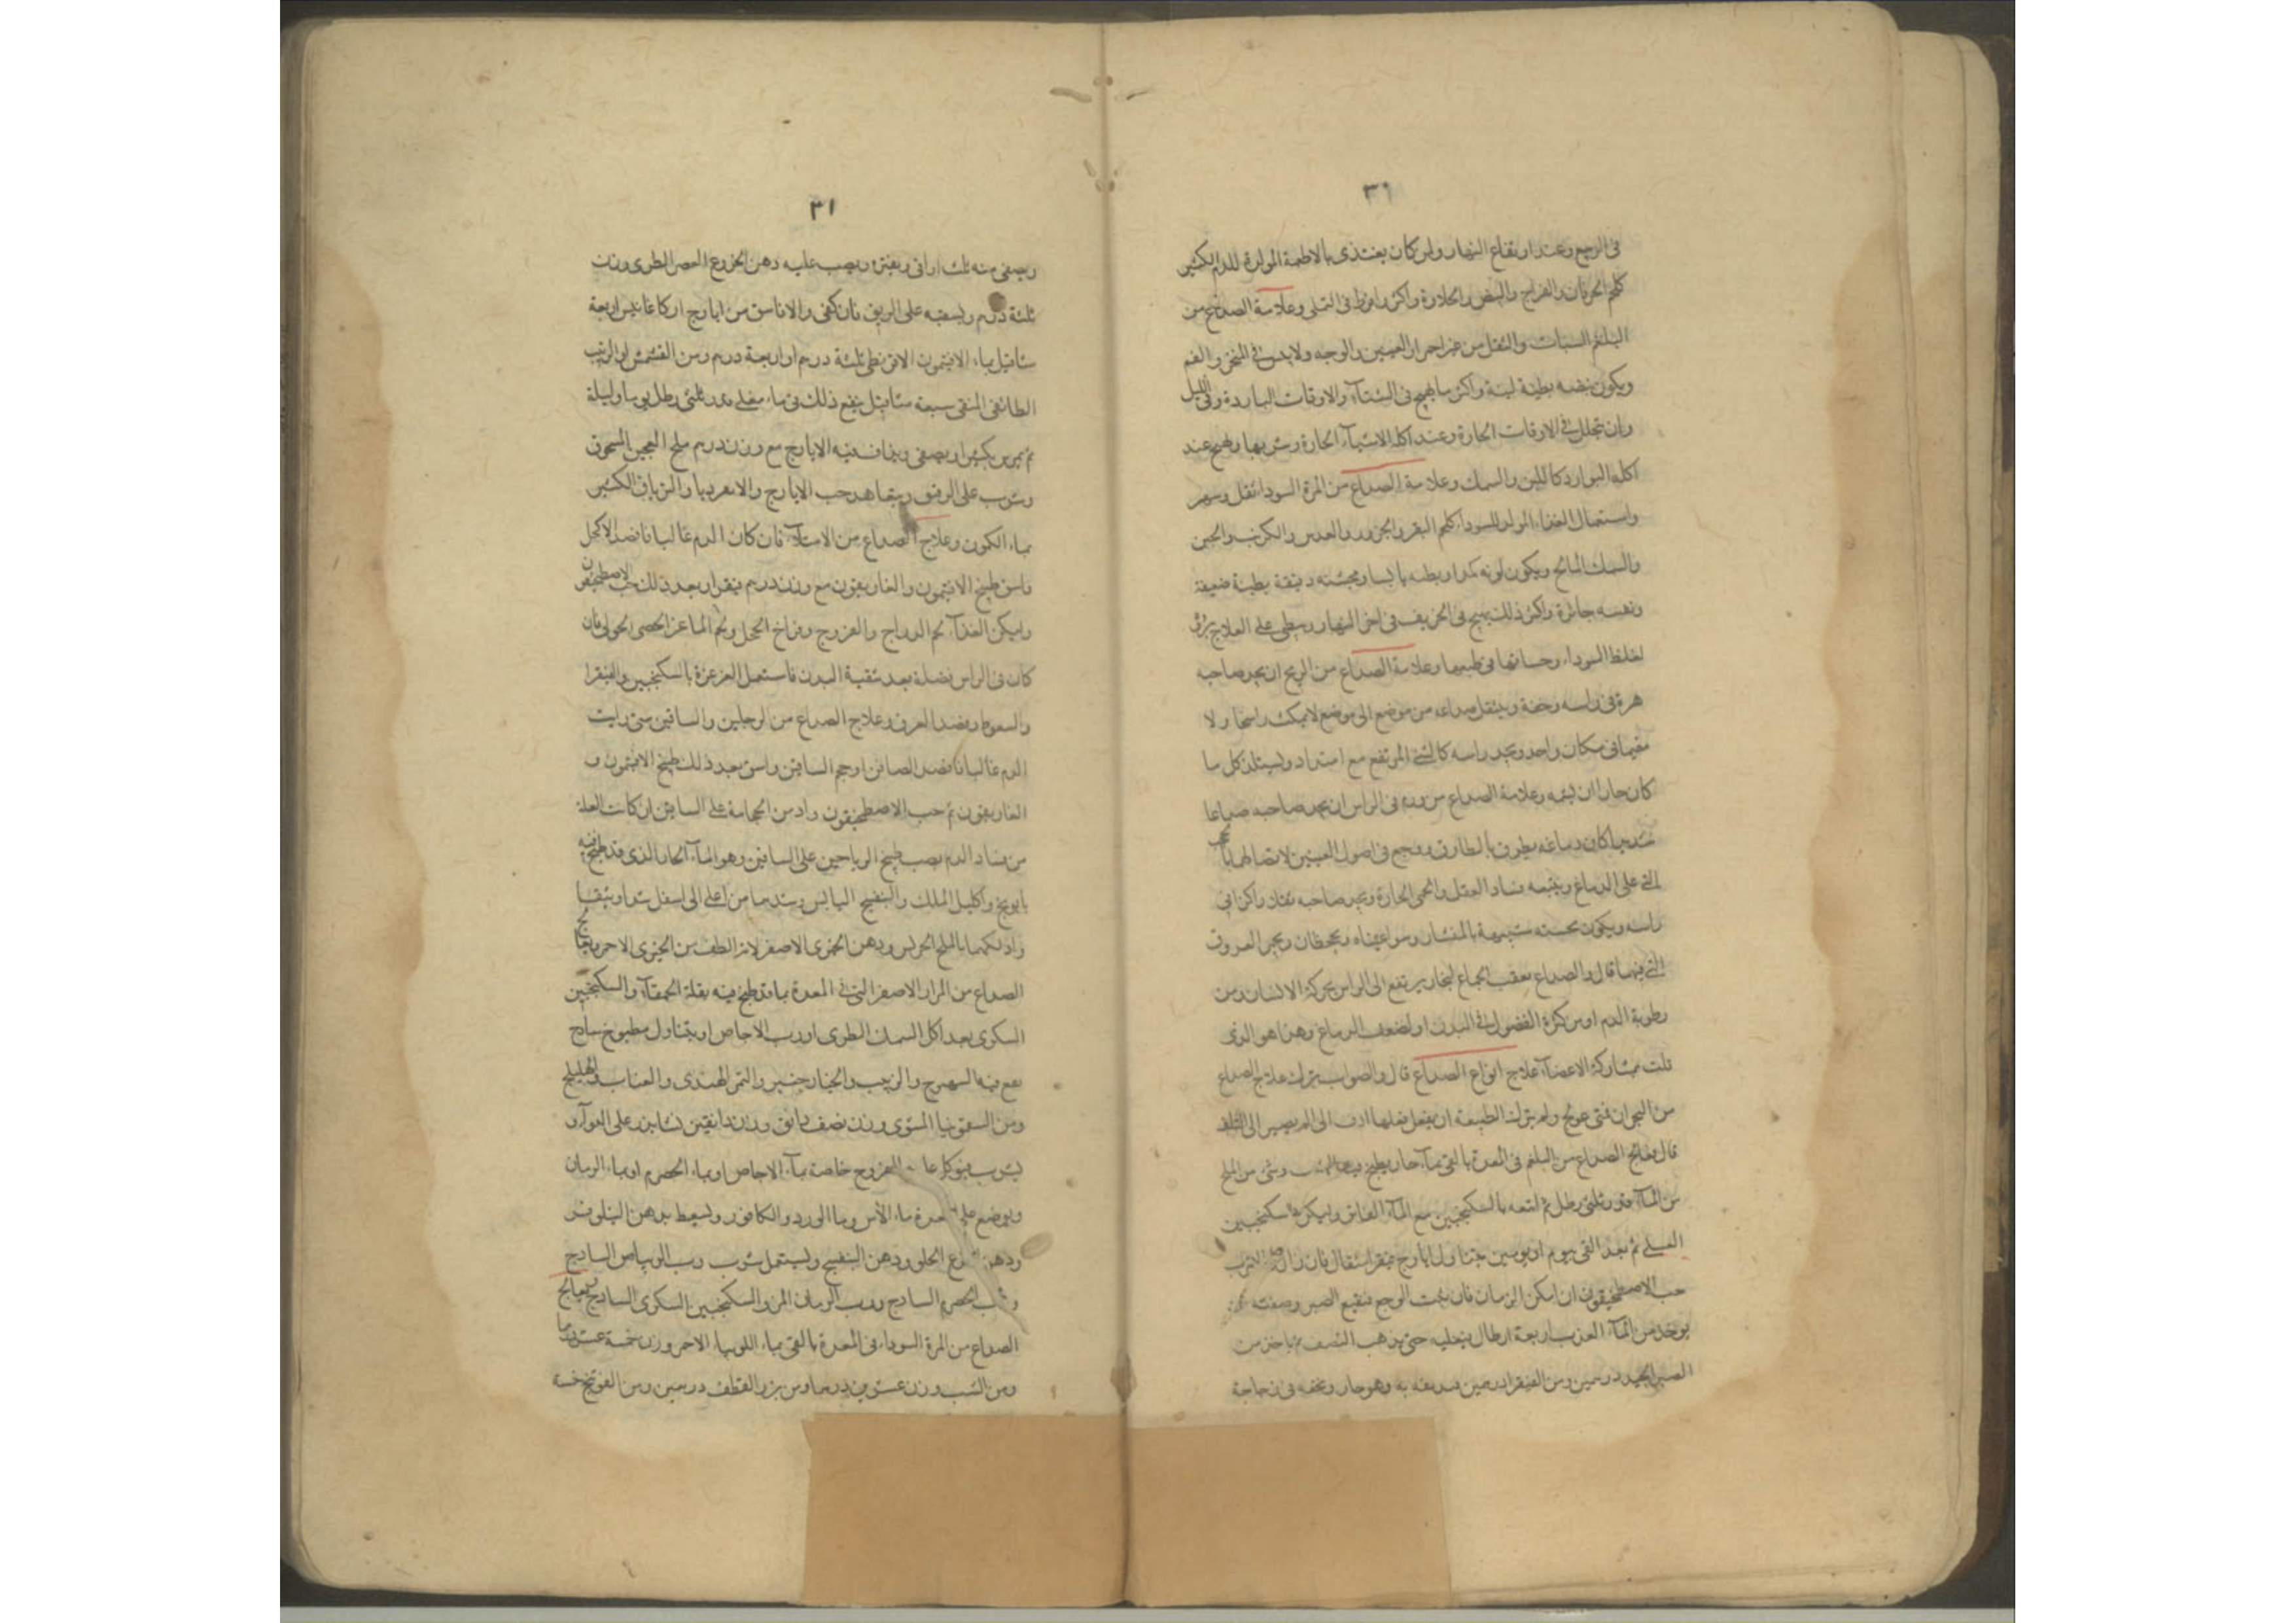 ٣١
في الربيع وعند ارتفاع النهار ولمن كان يغتذى بالاطعمة المولدة للدم الكثير
كلحم الخرفان والفراخ والبيض والحلاوة واكثر وافرط في التملى وعلامة الصداع من
البلغم السبات والثقل من غير احمرار العينين والوجه ولا يبس في المنخر والفم
ويكون نبضه بطيئة لينة واكثر ما يهيج في الشتآء والاوقات الباردة وفي الليل
وان تحلل في الاوقات الحارة وعند اكله الاشيآء الحارة وشربها ويهيج عند
اكله البوارد كاللبن والسمك وعلامة الصداع من المرة السودا ثقل وسهر
واستعمال الغذاء المولد للسوداء كلحم البقر والجزور والعدس والكرنب والجبن
والسمك المالح ويكون لونه كمدا وبطنه يابسا ومجسته دقيقة بطيئة ضعيفة
ونفسه جائرة واكثر ذلك يهيج في الخريف في اخر النهار ويبطى على العلاج برؤه
لغلظ السوداء وجساتها في طبعها وعلامة الصداع من الريح ان يجد صاحبه
هزة في راسه وخفة وينتقل صداعه من موضع الى موضع لا يمكث راسخا ولا
مقيما في مكان واحد ويجد راسه كالشئ المرتفع مع امتداد ويستلذ كل ما
كان حارا ان يشمه وعلامة الصداع من ورم في الراس ان يجد صاحبه صداعا
شديدا كان دماغه يطرق بالمطارق ووجع في اصول العينين لاتصالها بالحجب
التي على الدماغ ويتبعه فساد العقل والحمى الحارة ويجد صاحبه ثقلا واكثر في
راسه ويكون مجسته شبيهة بالمنشار وسواد عيناه ويجحظان ويحمر العروق
التي فيها قال والصداع يعقب الجماع لبخار يرتفع الى الراس بحركة الانسان ومن
رطوبة الدم او من كثرة الفضول في البدن او لضعف الدماغ وهذا هو الذى
قلت بمشاركة الاعضآء علاج انواع الصداع قال والصواب يترك علاج الصداع
من البحران فمتى عولج ولم يترك الطبيعة ان يفعل فعلها ادى الى الم يصير الى التلف
قال يعالج الصداع من البلغم في المعدة بالقى بمآء حار يطبخ فيه الشبت وشئ من الملح
من المآء قدر ثلثى رطل ثم اتبعه بالسكنجبين مع المآء الفاتر وليكن السكنجبين
العسلى ثم بعد القى بيوم او يومين يتناول ايارج فيقرا مثقال فان زال والا شرب
حب الاصطمخيقون ان امكن الزمان فان ثبت الوجع فنقيع الصبر وصفته
يوخذ من المآء العذب اربعة ارطال يغليه حتى يذهب النصف ثم ياخذ من
الصبر الجيد درهمين ومن الفيقرا درهمين فيديفه به وهو حار ويجعله في زجاجة
٣١
ويصفى منه ثلث اواق ويفتره ويصب عليه دهن الخروع العصر الطرى وزن
ثلثة درهم ويسقيه على الريق فان كفى والا فاسق من ايارج اركاغانيس اربعة
مثاقيل بماء الافتيمون الاقريطى ثلثة درهم او اربعة درهم ومن القشمش او الزبيب
الطائفى المنقى سبعة مثاقيل ينقع ذلك في ماء مغلى قدر ثلثى رطل يوما وليلة
ثم يمرس بكثيرا ويصفى ويذاف فيه الايارج مع وزن درهم ملح العجين المسحوق
وشرب على الرفق ويتعاهد حب الايارج والانقرديا والترياق الكثير
بماء الكمون وعلاج الصداع من الامتلآء فان كان الدم غالبا فافصد الاكحل
واسق طبيخ الافتيمون والغاريقون مع وزن درهم فيقرا وبعد ذلك حب الاصطمخيقون
وليكن الغذآء لحم الدراج والفروج وفراخ الحجل ولحم الماعز الخصى الحولى فان
كان في الراس فضلة بعد تنقية البدن فاستعمل الغرغرة بالسكنجبين والفيقرا
والسعوط وفصد العرق وعلاج الصداع من الرجلين والساقين متى رايت
الدم غالبا فافصد الصافن او حجم الساقين واسق بعد ذلك طبيخ الافتيمون و
الغاريقون ثم حب الاصطمخيقون وادمن الحجامة على الساقين ان كانت العلة
من فساد الدم يصب طبيخ الرياحين على الساقين وهو المآء الحار الذى قد طبخ فيه
بابونج واكليل الملك والبنفسج اليابس وشدهما من اعلى الى اسفل شدا وثيقا
وادلكهما بالملح الجريش ودهن الخيرى الاصفر لانه الطف من الخيرى الاحمر يعالج
الصداع من المرار الاصفر التي في المعدة بما قد طبخ فيه بقلة الحمقآء والسكنجبين
السكرى بعد اكل السمك الطرى او رب الاجاص او يتناول مطبوخ ساذج
يقع فيه الشهترج والزبيب والخيارجنبر والتمر الهندى والعناب والهليلج
ومن السقمونيا المشوى وزن نصف دانق وزن دانقين نشا بزر على القوآء و
يشرب بنوكرغا الفروج خاصة بمآء الاجاص او بماء الحصرم او بماء الرمان
ويوضع على المعدة ماء الآس وما الورد والكافور ويسعط بدهن النيلوفر
ودهن القرع الحلو ودهن البنفسج ويستعمل شرب رب الريباس الساذج
ورب الحصرم الساذج ورب الرمان المز والسكنجبين السكرى الساذج يعالج
الصداع من المرة السوداء في المعدة بالقى بماء اللوبيا الاحمر وزن خمسة عشر درهما
ومن الشبت وزن عشرين درهما ومن بزر القطف درهمين ومن الفوتنج خمسة